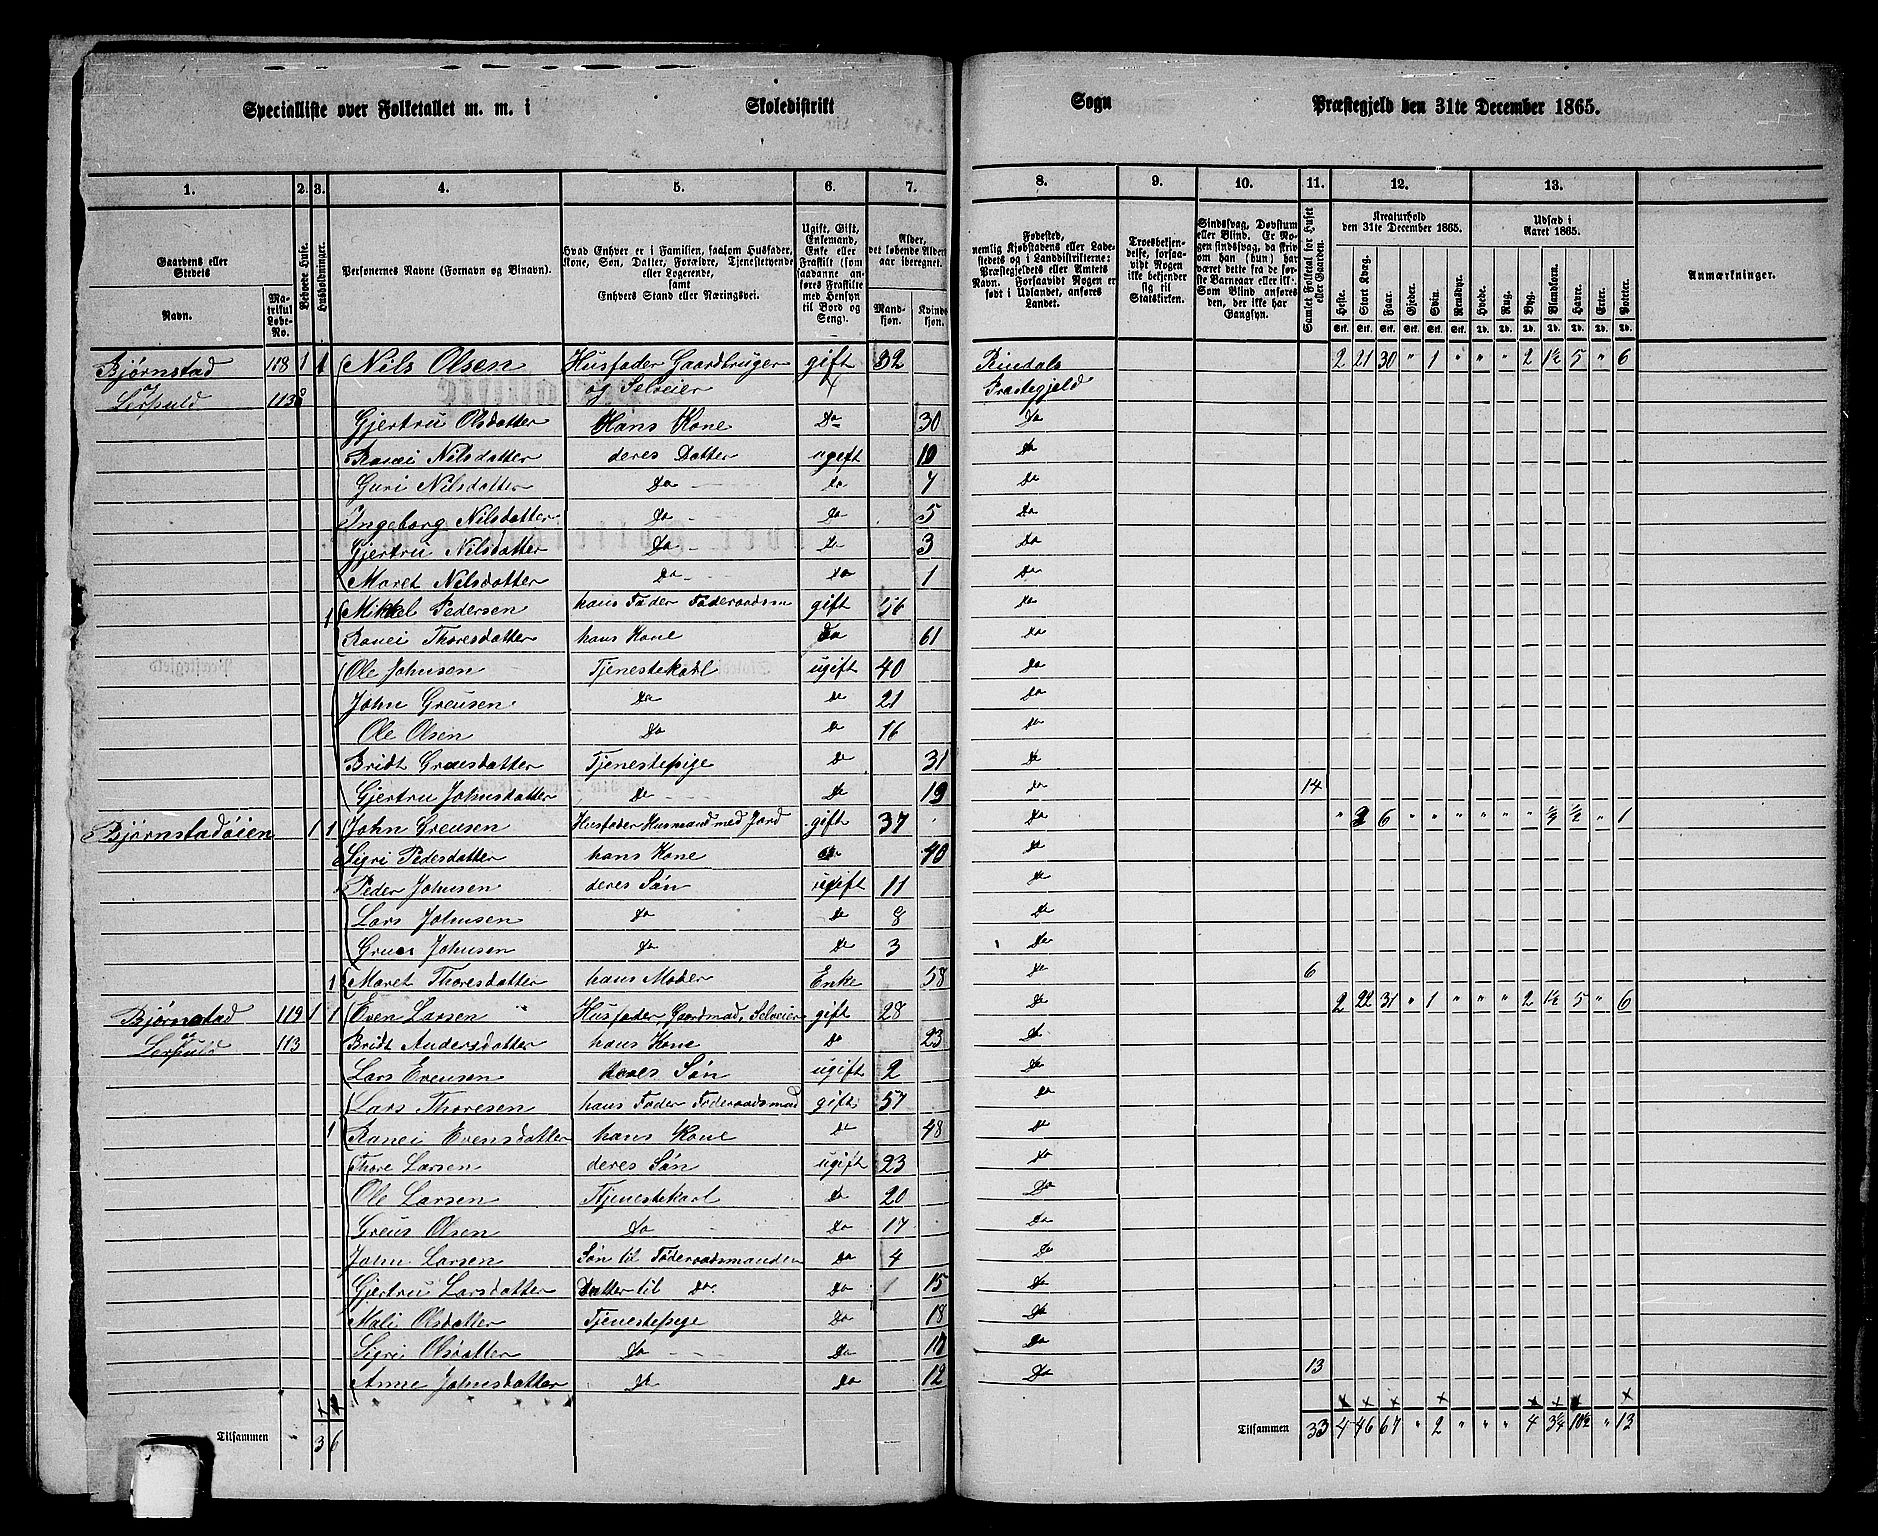 Specialliste over Folketallet m. m. i Skoledistrikt Sogn Præstegjeld den 31te December 1865.
1. 2. 3. 4. 5. 6. 7. 8. 9. 10. 11. 12. 13.
Gaardens eller Stedets
Navn.
Matrikul Løbe-No.
Beboede Huse.
Husholdninger.
Personernes Navne (Fornavn og Binavn).
Hvad Enhver er i Familien, saasom Husfader, Kone, Søn, Datter, Forældre, Tjenestetyende eller Logerende, samt Enhvers Stand eller Næringsvei.
Ugift, Gift, Enkemand, Enke eller Fraskilt (som saadanne anføres Fraskilte med Hensyn til Bord og Seng).
Alder, det løbende Alders aar iberegnet.
Mandkjøn. Kvindekjøn.
Fødested, nemlig Kjøbstadens eller Ladestedets og i Landdistrikterne: Præstegjeldets eller Amtets Navn. Forsaavidt Nogen er født i Udlandet, anføres Landet.
Troesbekjendelse, forsaavidt Nogen ikke bekjender sig til Statskirken.
Sindssvag, Døvstum eller Blind. Er Nogen sindssvag, da skrives om han (hun) har været dette fra de første Barneaar eller ikke. Som Blind anføres den, der ikke har Gangsyn.
Samlet Folketal for Huset eller Gaarden.
Kreaturhold den 31te December 1865.
Heste. Stort Kvæg. Faar. Gjeder. Sviin. Rensdyr.
Udsæd i Aaret 1865.
Hvede. Rug. Byg. Blandkorn. Havre. Erter. Poteter.
Anmærkninger.
Bjørnstad 118 1 1 Nils Olsen Husfader Gaardbruger gift 32 Rindals 2 21 30 " 1 " " " 2 1½ 5 " 6
113 og Selveier Præstegjeld
Gjertru Olsdatter Hans Kone Do 30 Do
Nilsdatter deres Datter ugift 10 Do
Guri Nilsdatter Do Do 7 Do
Ingeborg Nilsdatter Do Do 5 Do
Gjertru Nilsdatter Do Do 3 Do
Maret Nilsdatter Do Do 1 Do
1 Mikkel Pedersen hans Fader Føderaadsm gift 56 Do
Ranei Thoresdatter hans Kone Do 61 Do
Ole Johnsen Tjenestekarl ugift 40 Do
John Greusen Do Do 21 Do
Ole Olsen Do Do 16 Do
Bridt Greusdatter Tjenestepige Do 31 Do
Gjertru Johnsdatter Do Do 19 Do 14
Bjørnstadøien 1 1 John Greusen Husfader Husmand med Jord gift 37 Do " 3 6 " " " " " " " 1
Sigri Pedersdatter hans Kone Do 40 Do
Peder Johnsen deres Søn ugift 11 Do
Lars Johnsen Do Do 8 Do
Greus Johnsen Do Do 3 Do
1 Maret Thoresdatter hans Moder Enke 58 Do 6
Bjørnstad 119 1 1 Even Larsen Husfader, Gaardmad, Selveier gift 28 Do 2 22 31 " 1 " " " 2 1½ 5 " 6
113 Bridt Andersdatter hans Kone Do 23 Do
Lars Evensen deres Søn ugift 2 Do
Lars Thoresen hans Fader Føderaadsmand gift 57 Do
1 Ranei Evensdatter hans Kone Do 48 Do
Thore Larsen deres Søn ugift 23 Do
Ole Larsen Tjenestekarl Do 20 Do
Greus Olsen Do Do 17 Do
John Larsen Søn til Føderaadsmanden Do 4 Do
Gjertru Larsdatter Datter til Do Do 15 Do
Mali Olsdatter Tjenestepige Do 18 Do
Sigri Olsdatter Do Do Do
Anne Johnsdatter Do Do 12 Do 13
Tilsammen 3 6 Tilsammen 33 4 46 67 " 2 " " " 4 3¼ 10½ " 13